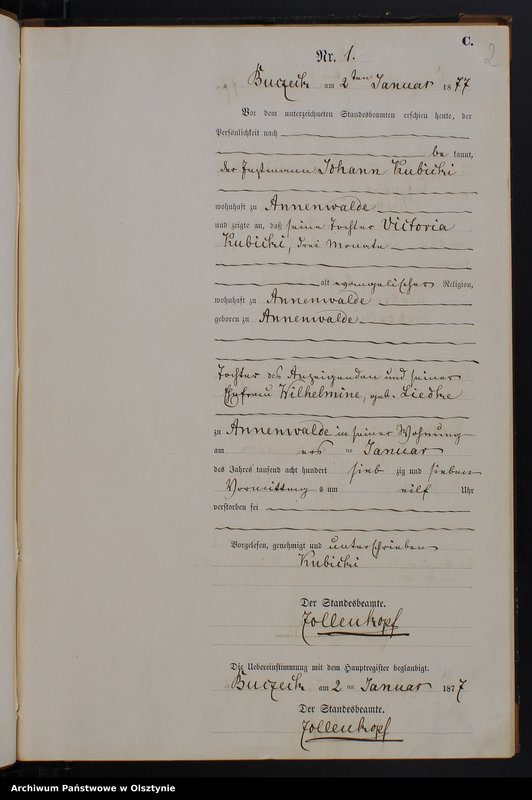 C.
2
Nr. 1.
Buczeck am 2ten Januar 1877
Vor dem unterzeichneten Standesbeamten erschien heute, der
Persönlichkeit nach
be kannt,
der Instmann Johann Kubicki
wohnhaft zu Annenwalde
und zeigte an, daß seine Tochter Victoria
Kubicki, drei Monate
alt evangelischer Religion,
wohnhaft zu Annenwalde
geboren zu Annenwalde
Tochter des Anzeigenden und seiner
Ehefrau Wilhelmine, geb. Liedtke
zu Annenwalde in seiner Wohnung
am ers ten Januar
des Jahres tausend acht hundert sieb zig und sieben
Vormittag s um eilf Uhr
verstorben sei
Vorgelesen, genehmigt und unterschrieben
Kubicki
Der Standesbeamte.
Zollenkopf
Die Uebereinstimmung mit dem Hauptregister beglaubigt.
Buczeck am 2 ten Januar 1877
Der Standesbeamte.
Zollenkopf
Archiwum Państwowe w Olsztynie